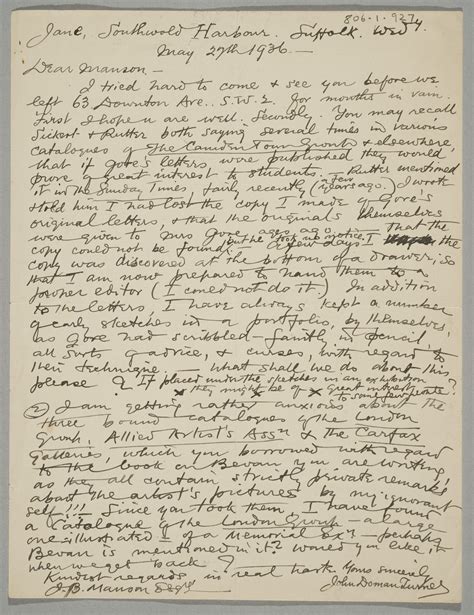 806.1.927
Jane, Southwold Harbour. Suffolk. Wedy.
May 27th 1936.—
Dear Manson —
I tried hard to come & see you before we
left 63 Downton Ave. S.W.2. for months in vain.
First I hope u are well. Secondly. You may recall
Sickert & Rutter both saying several times in various
catalogues of The Camden Town Group & elsewhere,
that if Gore's letters, were published they would
prove of great interest to students. Rutter mentioned
it in the Sunday Times, fairly recently (a few years ago. I wrote
& told him I had lost the copy I made of Gore's
original letters, & that the originals themselves
were given to Mrs Gore, ages ago, & that the
copy could not be found, but he took no notice. A few days I the
copy was discovered at the bottom of a drawer; so
that I am now prepared to hand them to a
proper editor (I could not do it.) In addition
to the letters, I have always kept a number
of early sketches in a portfolio, by themselves,
as Gore had scribbled — faintly in pencil,
all sorts of advice, & curses, with regard to
their technique. — What shall we do about this
please? If placed under the sketches in an exhibition
they might be of great interest
to some few people?
② I am getting rather anxious about the
three bound catalogues of the London
Group, Allied Artist's Assn & the Carfax
Galleries, which you borrowed with regard
to the book on Bevan you are writing
as they all contain strictly private remarks
about the artist's pictures by my ignorant
self!!! Since you took them, I have found
a catalogue of the London Group — a large
one illustrated & of a Memorial Exn — perhaps
Bevan is mentioned in it? Would you like it
when we get back?
Kindest regards, in real haste Yours sincerely
J.B. Manson Esq. John Doman Turner